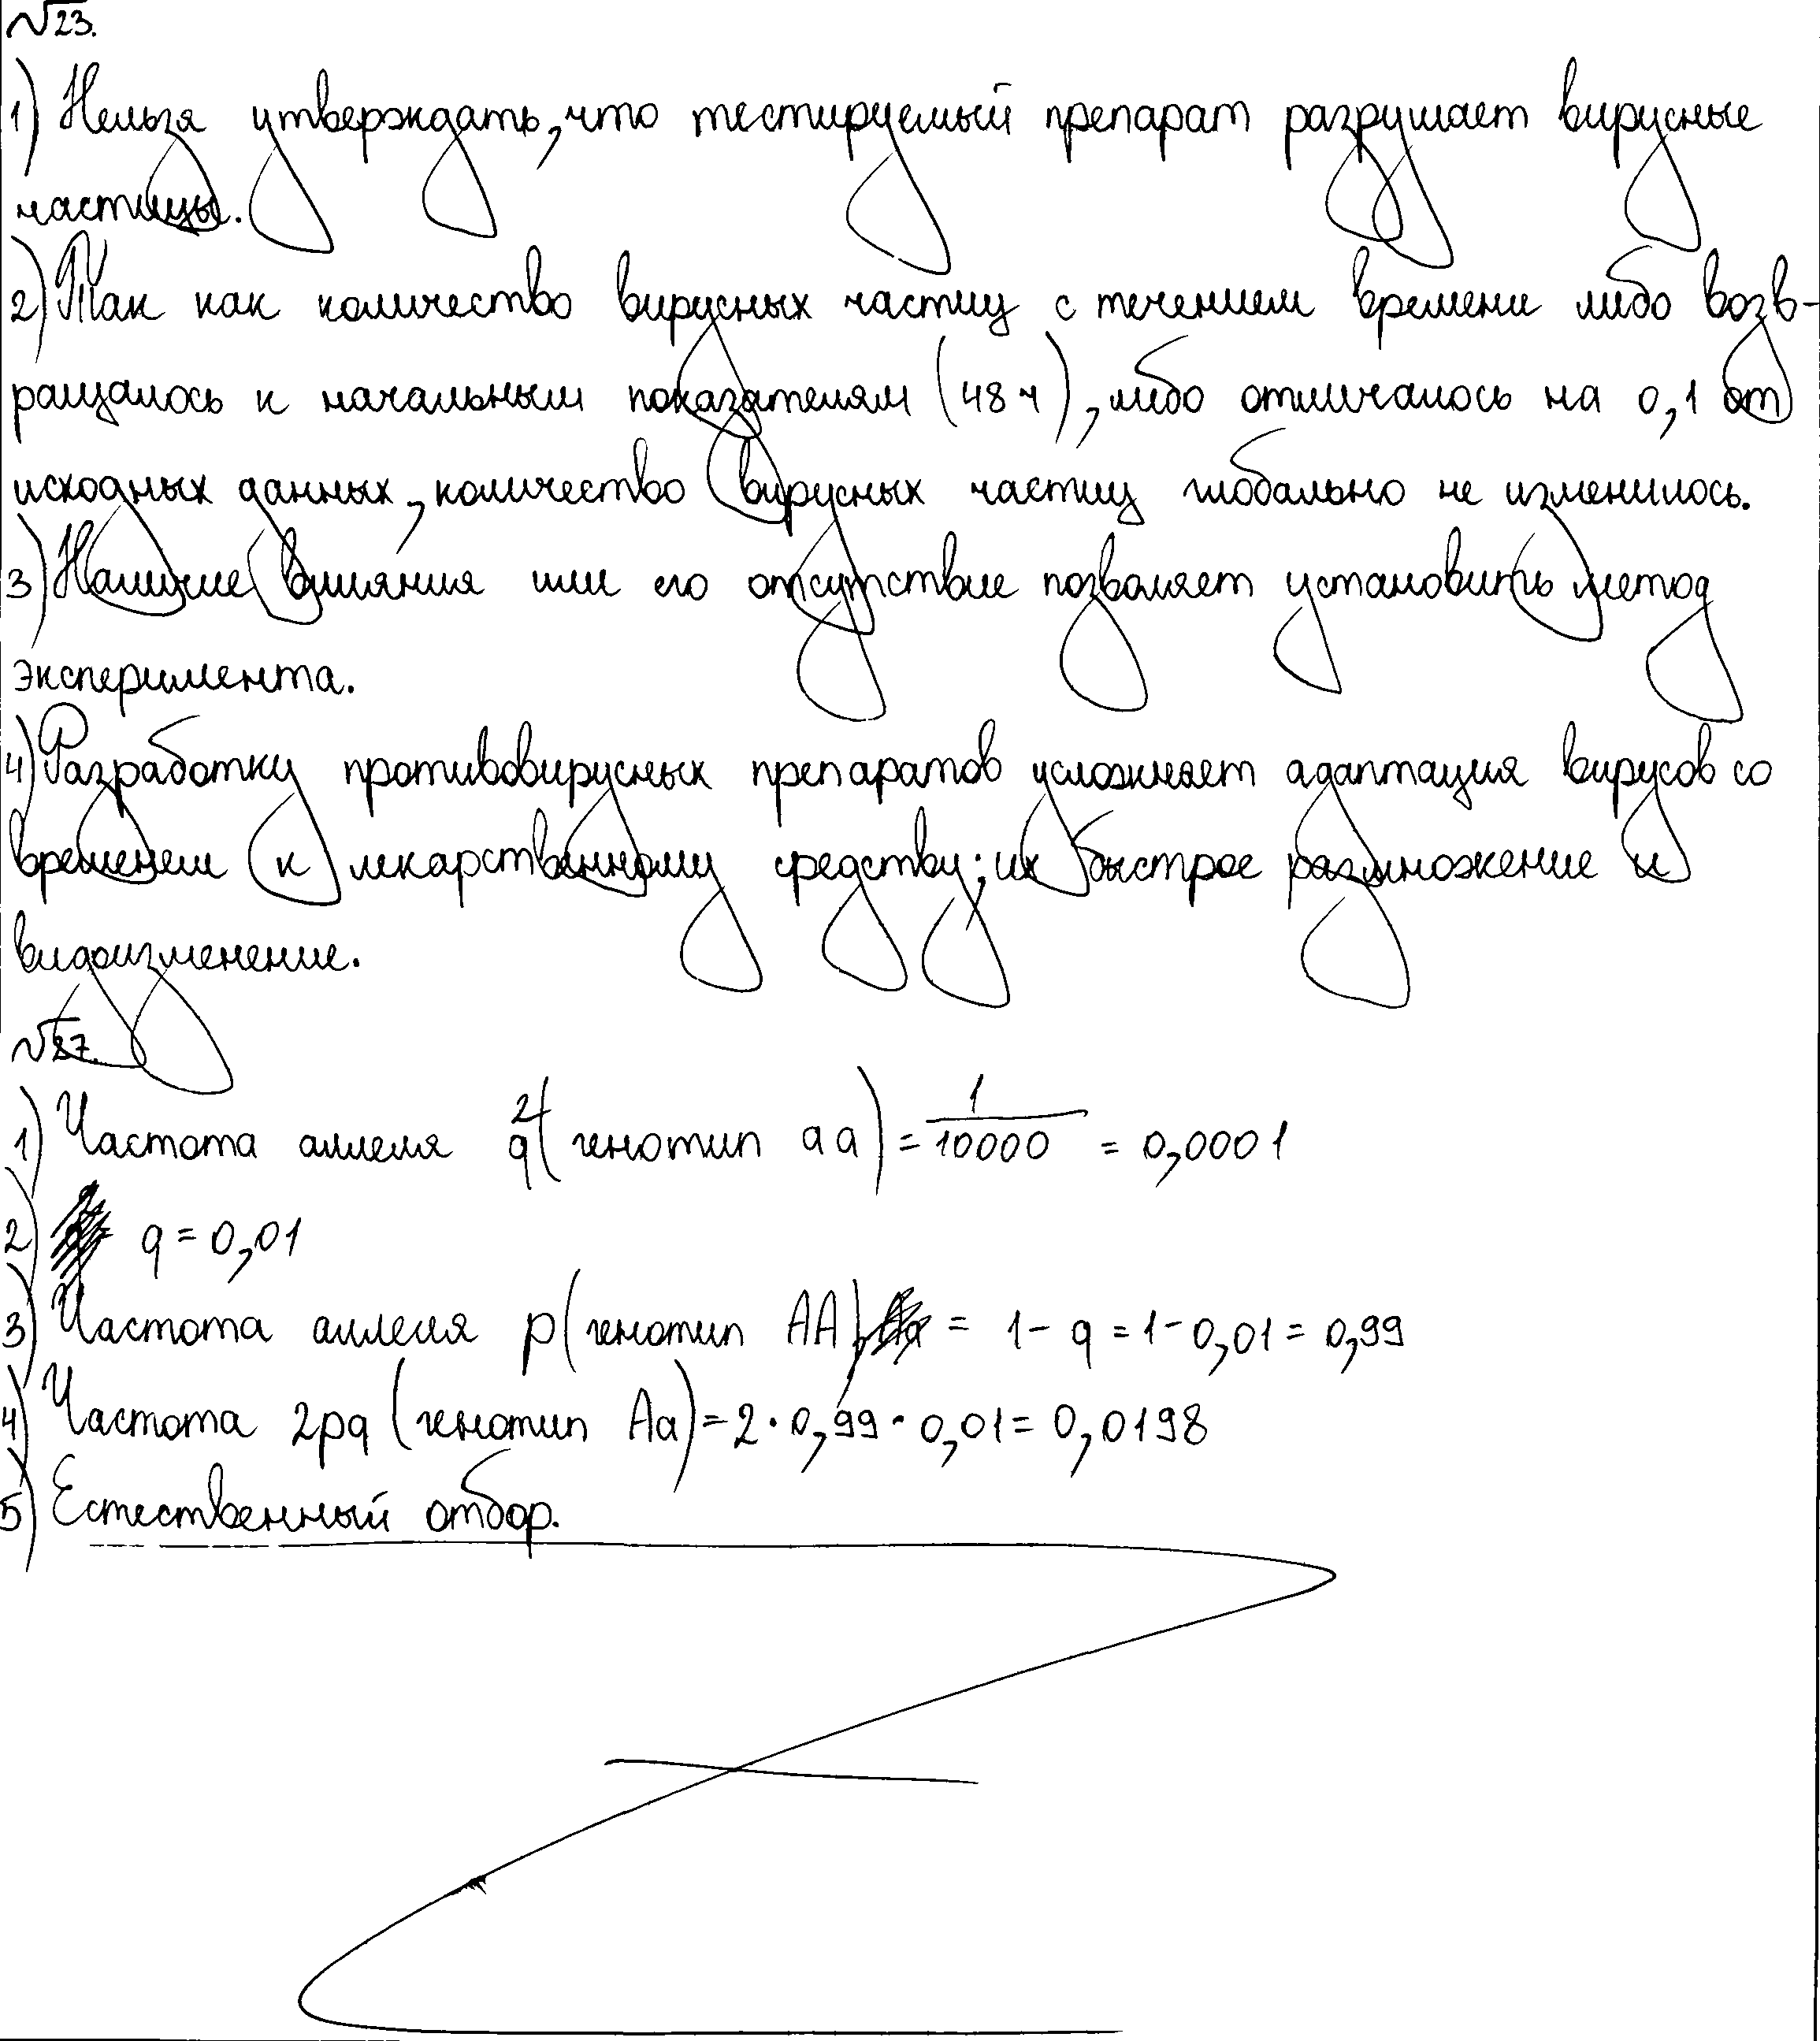 №23.
1) Нельзя утверждать, что тестируемый препарат разрушает вирусные
частицы.
2) Так как количество вирусных частиц с течением времени либо возв-
ращалось к начальным показателям (48 ч), либо отличалось на 0,1 от
исходных данных, количество вирусных частиц глобально не изменилось.
3) Наличие влияния или его отсутствие позволяет установить метод
эксперимента.
4) Разработку противовирусных препаратов усложняет адаптация вирусов со
временем к лекарственному средству; их быстрое размножение и
видоизменение.
№27.
1) Частота аллеля q² (генотип аа) = 1/10000 = 0,0001
2) q = 0,01
3) Частота аллеля p (генотип АА) = 1 - q = 1 - 0,01 = 0,99
4) Частота 2pq (генотип Аа) = 2 · 0,99 · 0,01 = 0,0198
5) Естественный отбор.